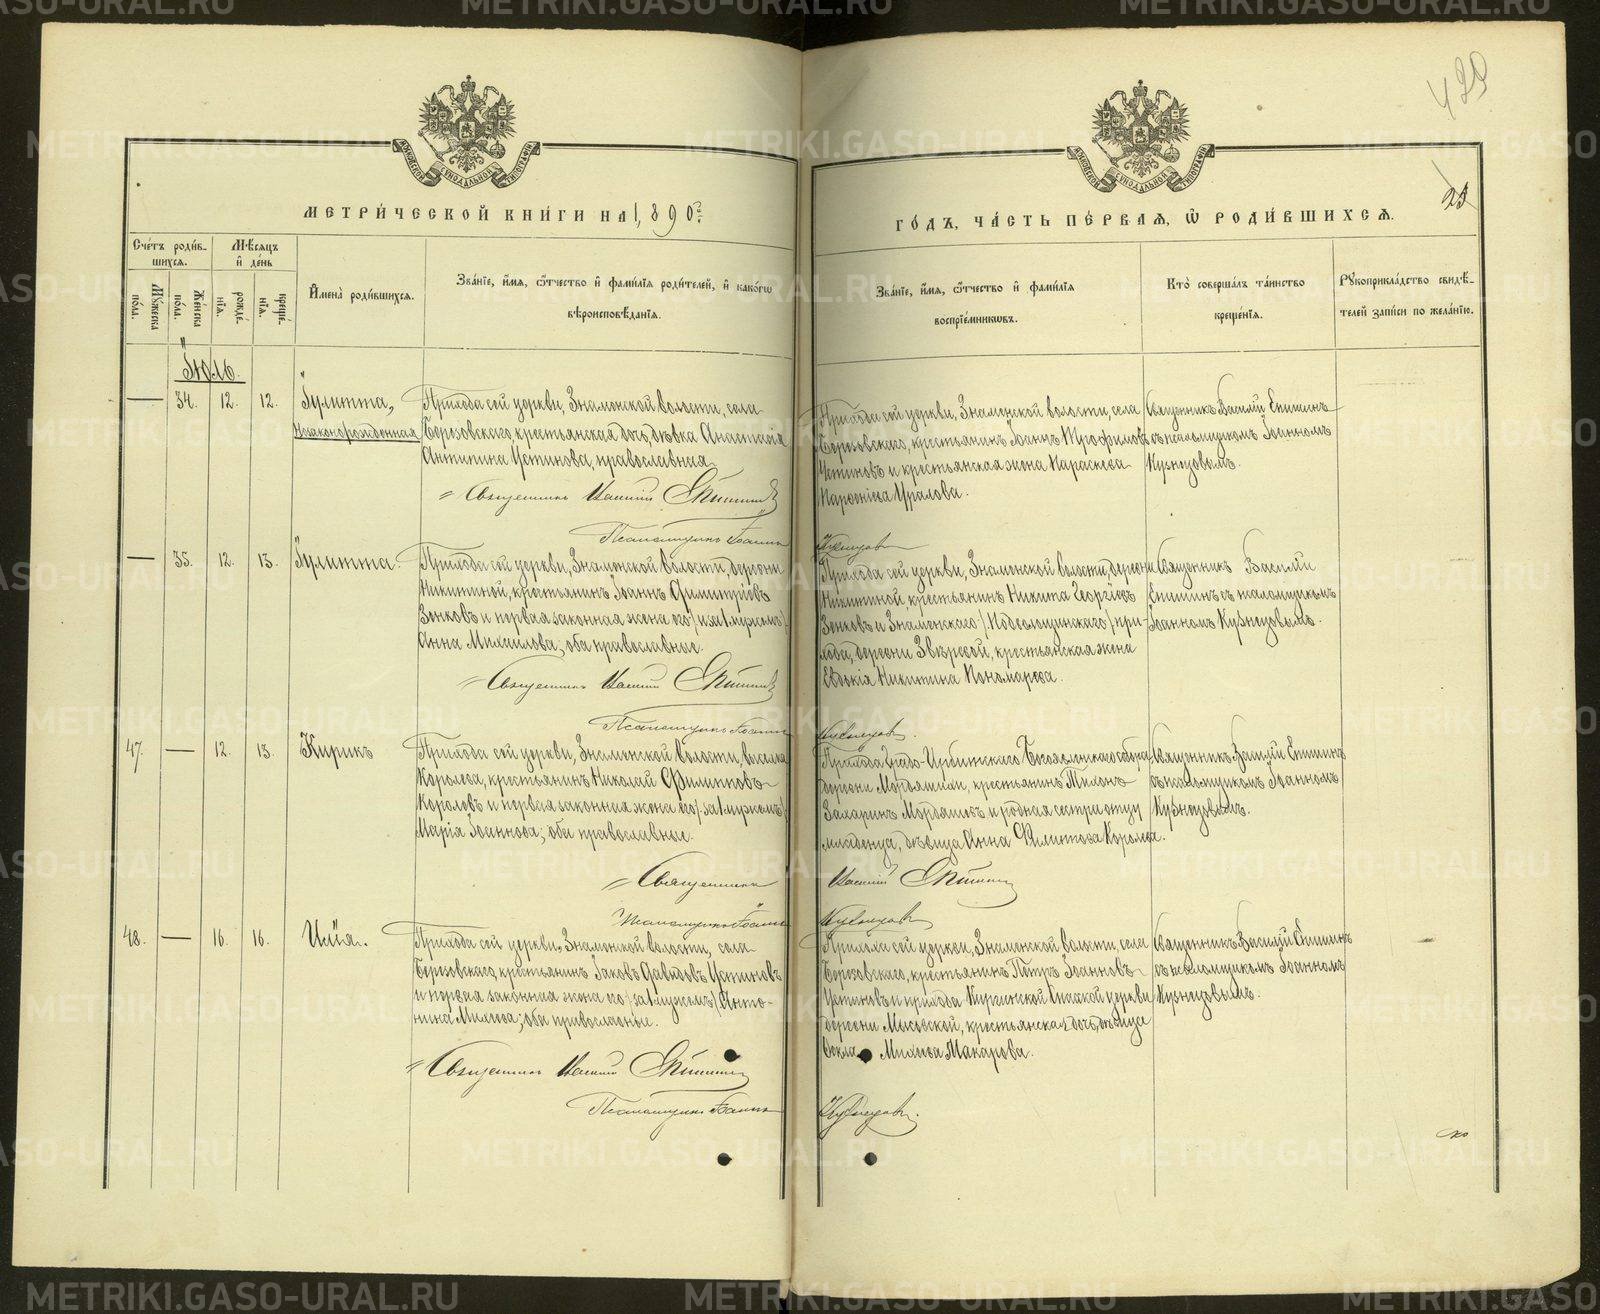 METRIKI.GASO-URAL.RU
429
23
МЕТРИ́ЧЕСКОЙ КНИ́ГИ НА 1,890й
ГО́ДЪ, ЧА́СТЬ ПЕ́РВАЯ, Ѽ РОДИ́ВШИХСЯ.
Сче́тъ роди́в-
шихся.
Мѣсяцъ
и҆ де́нь
Му́жеска
по́ла.
Же́нска
по́ла.
рожде́-
нія.
креще́-
нія.
И҆мена̀ роди́вшихся.
Зва́ніе, и҆́мя, ѻ҆́тчество и҆ фами́лія роди́телей, и҆ како́гѡ
вѣроисповѣ́данія.
Зва́ніе, и҆́мя, ѻ҆́тчество и҆ фами́лія
воспріе́мникѡвъ.
Кто̀ соверша́лъ та́инство
креще́нія.
Рꙋкоприкла́дство свидѣ́-
телей за́писи по жела́нію.
Іюль.
— 34. 12. 12. Іулитта,
незаконорожденная
Прихода сей церкви, Знаменской волости, села
Березовскаго, крестьянская дочь, дѣвка Анастасія
Антипина Устинова, православная.
Священникъ Василій Епишинъ
Псаломщикъ Іоаннъ
Прихода сей церкви, Знаменской волости, села
Березовскаго, крестьянинъ Іоаннъ Трофимовъ
Устиновъ и крестьянская жена Параскева
Уралова.
Кузнецовъ
Священникъ Василій Епишинъ
съ псаломщикомъ Іоанномъ
Кузнецовымъ.
— 35. 12. 13. Іулитта.
Прихода сей церкви, Знаменской волости, деревни
Никитиной, крестьянинъ Іоаннъ Димитріевъ
Зенковъ и первая законная жена его /за 1 мужемъ/
Анна Михаилова; оба православные.
Священникъ Василій Епишинъ
Псаломщикъ Іоаннъ
Прихода сей церкви, Знаменской волости, деревни
Никитиной, крестьянинъ Никита Георгіевъ
Зенковъ и Знаменскаго при-
хода, деревни Звѣревой, крестьянская жена
Евдокія Никитина Пономарева.
Кузнецовъ.
Священникъ Василій
Епишинъ съ псаломщикомъ
Іоанномъ Кузнецовымъ.
47. — 12. 13. Кирикъ
Прихода сей церкви, Знаменской волости, выселка
Королева, крестьянинъ Николай Филипповъ
Королевъ и первая законная жена его /за 1 мужемъ/
Марія Іоаннова; оба православные.
Священникъ
Псаломщикъ Іоаннъ
Прихода Градо-Ирбитскаго Богоявленскаго собора
деревни Мордяшихи, крестьянинъ Тихонъ
Захаринъ Мордяшевъ и родная сестра отцу
младенца, дѣвица Анна Филиппова Королева.
Василій Епишинъ
Кузнецовъ
Священникъ Василій Епишинъ
съ псаломщикомъ Іоанномъ
Кузнецовымъ.
48. — 16. 16. Илія.
Прихода сей церкви, Знаменской волости, села
Березовскаго, крестьянинъ Іаковъ Давидовъ Устиновъ
и первая законная жена его /за 1 мужемъ/ Анто-
нина ; оба православные.
Священникъ Василій Епишинъ
Псаломщикъ Іоаннъ
Прихода сей церкви, Знаменской волости, села
Березовскаго, крестьянинъ Петръ Іоанновъ
Устиновъ и прихода Киргинской Спасской церкви
деревни Мысовской, крестьянская дочь, дѣвица
Ѳекла Макарова.
Кузнецовъ.
Священникъ Василій Епишинъ
съ псаломщикомъ Іоанномъ
Кузнецовымъ.